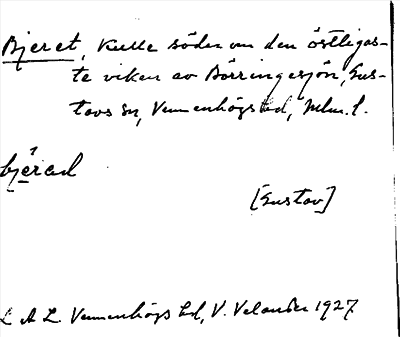 Bjeret, Kulle söder om den östligas-
te viken av Börringesjön, Gus-
tavs sn, Vemmenhögs hd, Mlm. l.
bjèrad
[Gustav]
L A L Vemmenhögs hd, V. Velander 1927